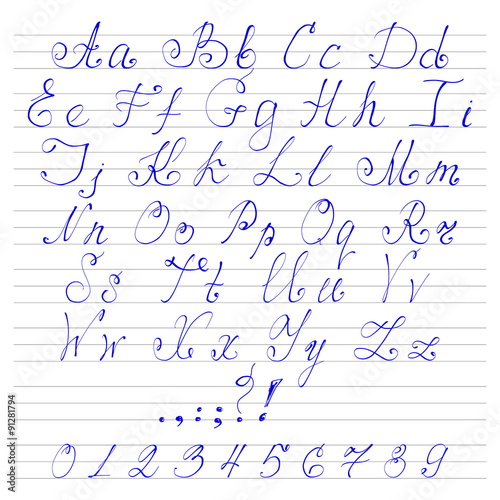 Aa Bb Cc Dd
Ee Ff Gg Hh Ii
Jj Kk Ll Mm
Nn Oo Pp Qq Rr
Ss Tt Uu Vv
Ww Xx Yy Zz
.,:;?!
0 1 2 3 4 5 6 7 8 9
Adobe Stock | #91281794